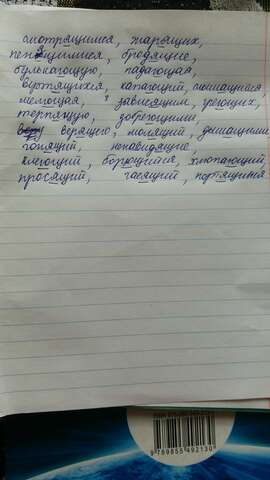 смотрящимся, жарящих,
пенящимися, бродящие,
булькающую, падающая,
вертящихся, капающий, слышащиеся
мелющая, зависящим, греющих,
терпящую, добреющими,
верящую, молящий, дышащими
гонящий, ненавидящие,
клеющий, борющийся, хлопающий,
просящий, гасящий, портящимся
9789855492130